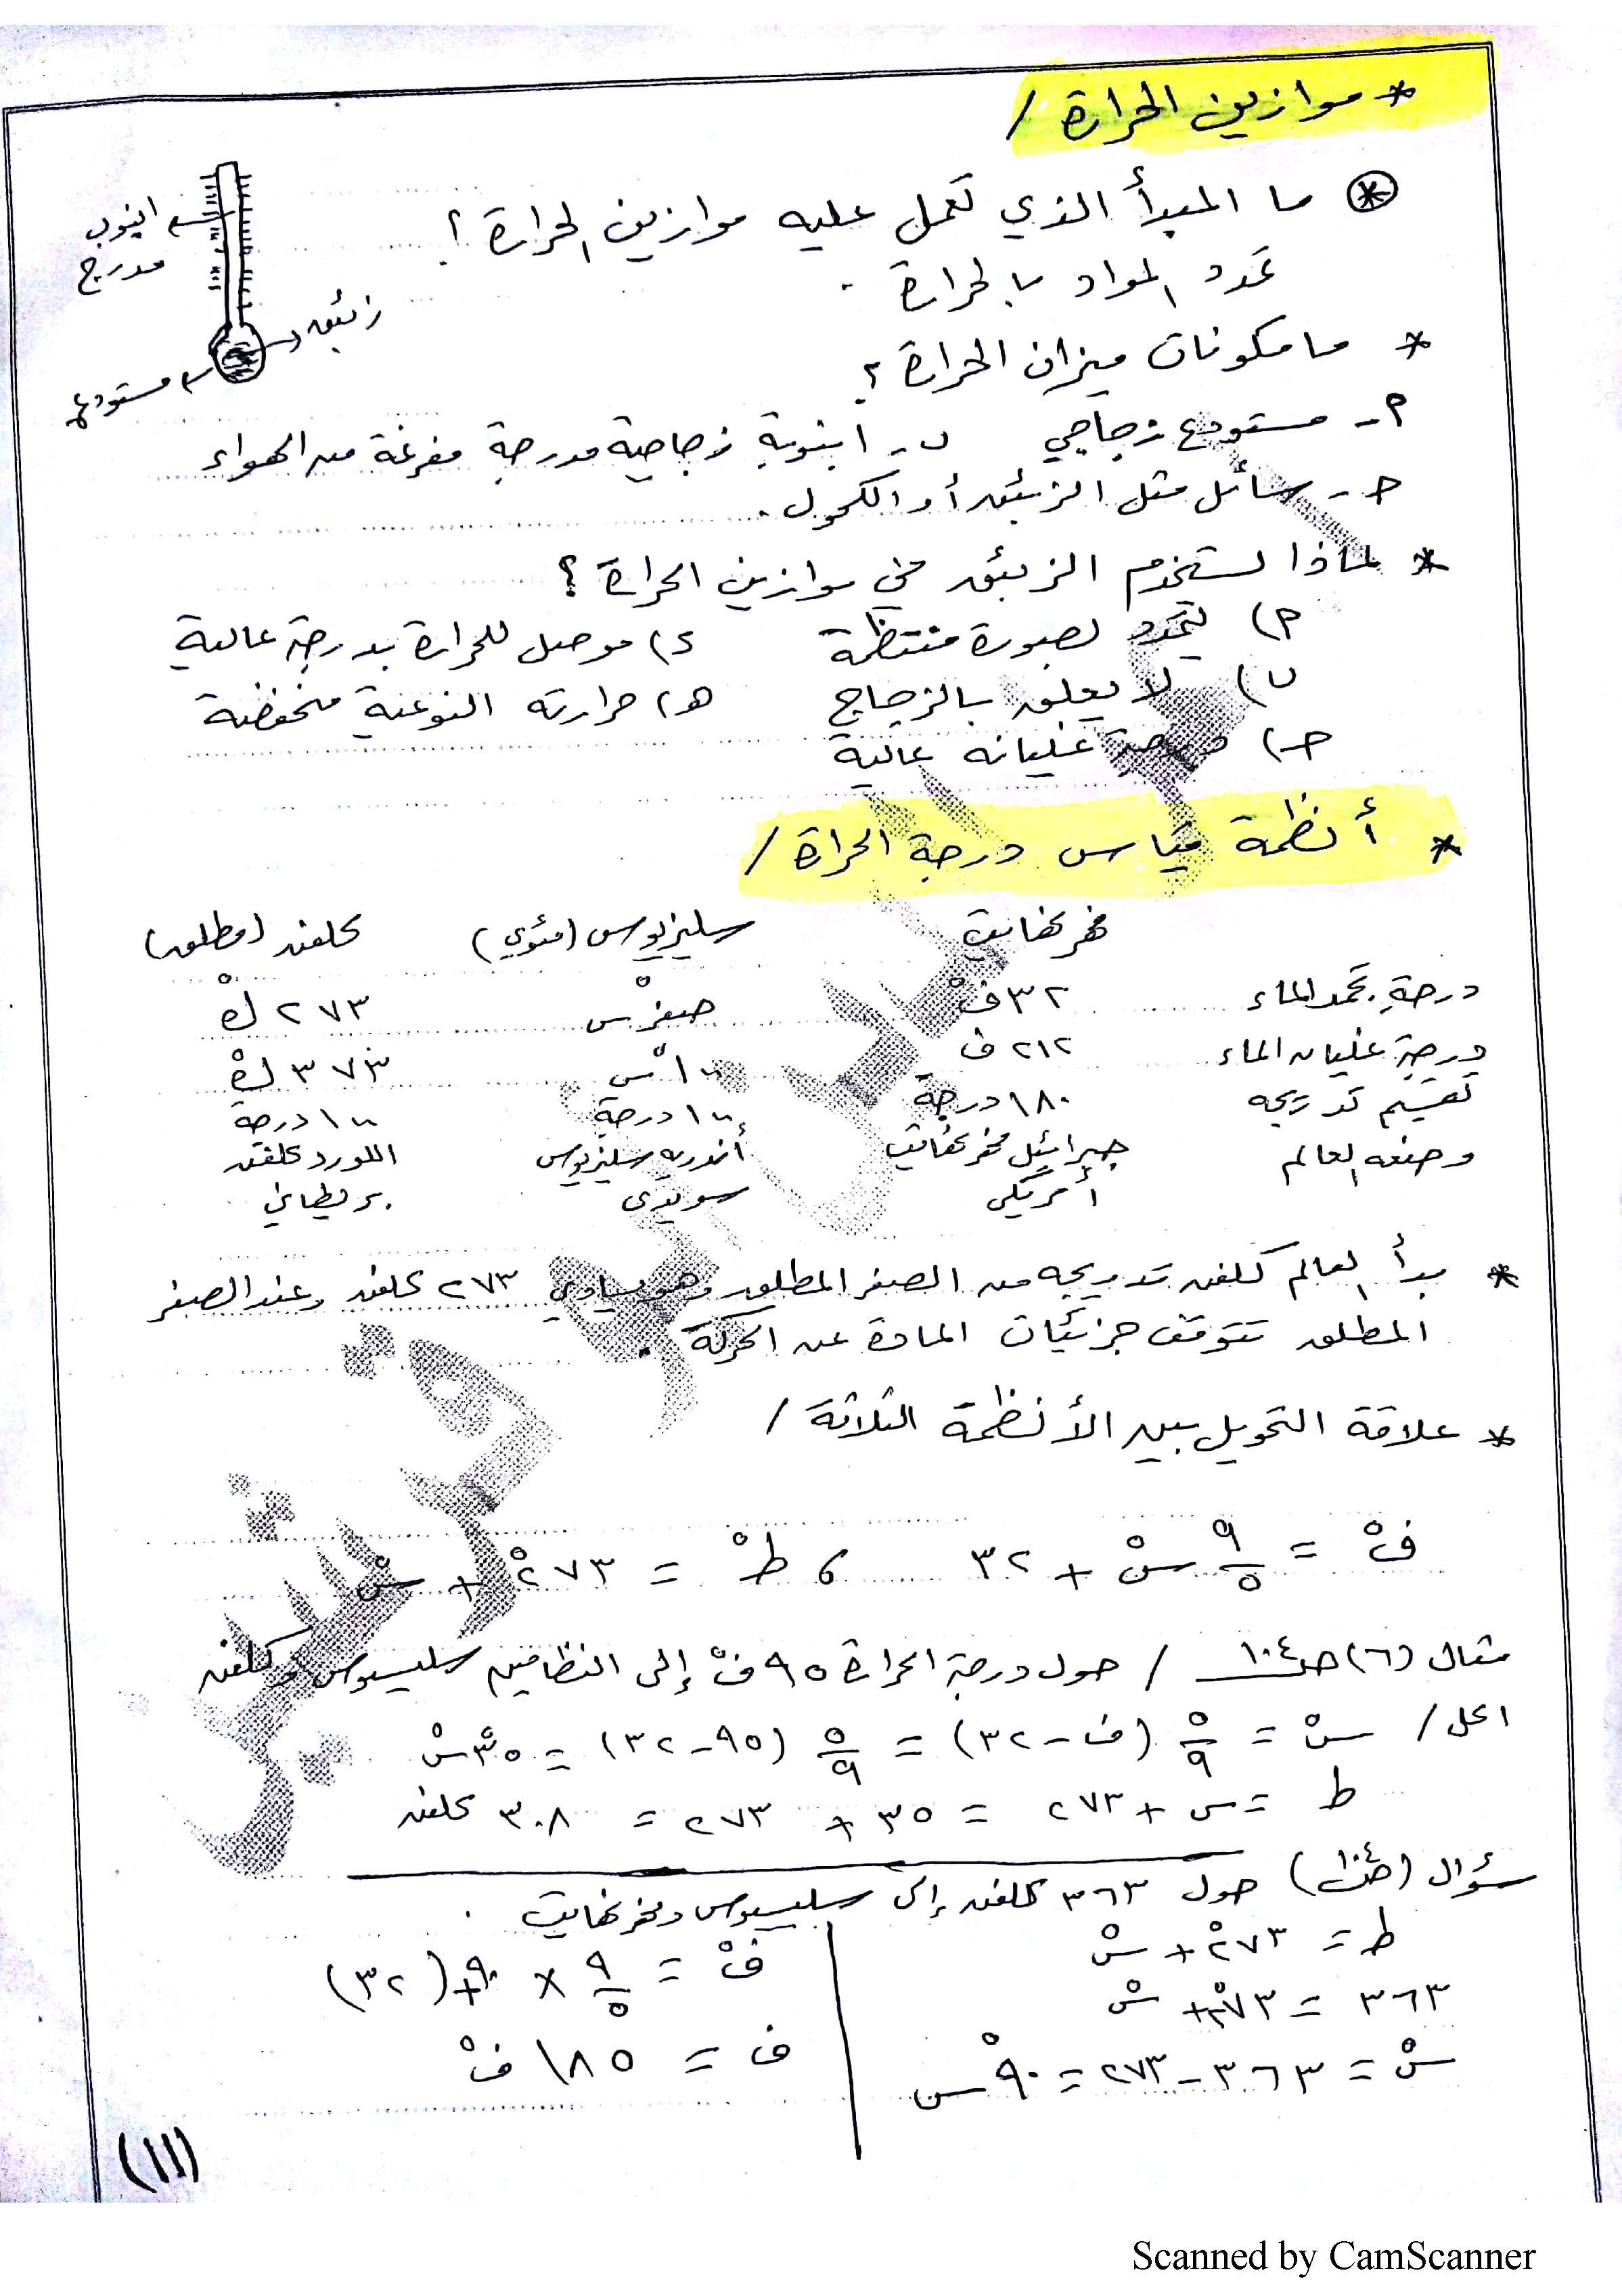 * موازين الحرارة /
* ما المبدأ الذي تعمل عليه موازين الحرارة ؟
تمدد المواد بالحرارة .
انبوب مدرج
زئبق
مستودع
* ما مكونات ميزان الحرارة ؟
أ- مستودع زجاجي ب- انبوبة زجاجية مدرجة مفرغة من الهواء
جـ- سائل مثل الزئبق أو الكحول .
* لماذا يستخدم الزئبق في موازين الحرارة ؟
أ) يتمدد بصورة منتظمة د) موصل للحرارة بدرجة عالية
ب) لا يعلق بالزجاج هـ) حرارته النوعية منخفضة
جـ) درجة غليانه عالية
* أنظمة قياس درجة الحرارة /
فهرنهايت سليزيوس (مئوي) كلفن (مطلق)
درجة تجمد الماء ٣٢ فْ صفر سْ ٢٧٣ كْ
درجة غليان الماء ٢١٢ ف ١٠٠ سْ ٣٧٣ كْ
تقسيم تدريجه ١٨٠ درجة ١٠٠ درجة ١٠٠ درجة
وضعه العالم جبرائيل فهرنهايت أندريه سليزيوس اللورد كلفن
أمريكي سويدى بريطاني
* بدأ العالم كلفن تدريجه من الصفر المطلق وهو يساوي ٢٧٣ كلفن وعند الصفر
المطلق تتوقف جزيئات المادة عن الحركة .
* علاقة التحويل بين الأنظمة الثلاثة /
فْ = ٩/٥ سْ + ٣٢ ، طْ = ٢٧٣ْ + سْ
مثال (٦) صـ ١٠٤ / حول درجة الحرارة ٩٥ فْ إلى النظامين سليسيوس وكلفن
الحل / سْ = ٥/٩ (ف - ٣٢) = ٥/٩ (٩٥ - ٣٢) = ٣٥ْ س
ط = س + ٢٧٣ = ٣٥ + ٢٧٣ = ٣٠٨ كلفن
سؤال (صـ ١٠٤) حول ٣٦٣ كلفن إلى سليسيوس وفهرنهايت .
ط = ٢٧٣ْ + سْ
٣٦٣ = ٢٧٣ + سْ
سْ = ٣٦٣ - ٢٧٣ = ٩٠ْ س
فْ = ٩/٥ × ٩٠ + (٣٢)
ف = ١٨٥ فْ
(١١)
Scanned by CamScanner